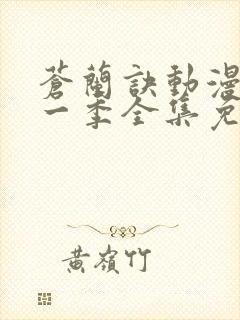 蒼蘭訣動漫
一季全集免
黃嶺竹